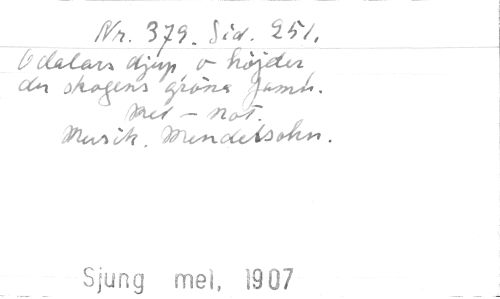 Nr. 379. Sid. 251.
O dalars djup o höjder
du skogens gröna famn.
Mel – not.
Musik. Mendelsohn.
Sjung mel, 1907